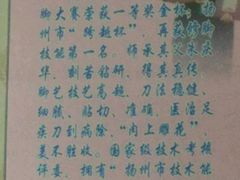 脚大赛荣获一等奖金杯，扬
州市“跨越杯”，再获修
技能第一名。师承其父朱
华，刻苦钻研，得其真传
脚艺技艺高超，刀法稳健、
细腻、贴切、准确，医治足
疾刀到病除，“肉上雕花”，
美不胜收。国家级技术考核
评委，拥有“扬州市技术能